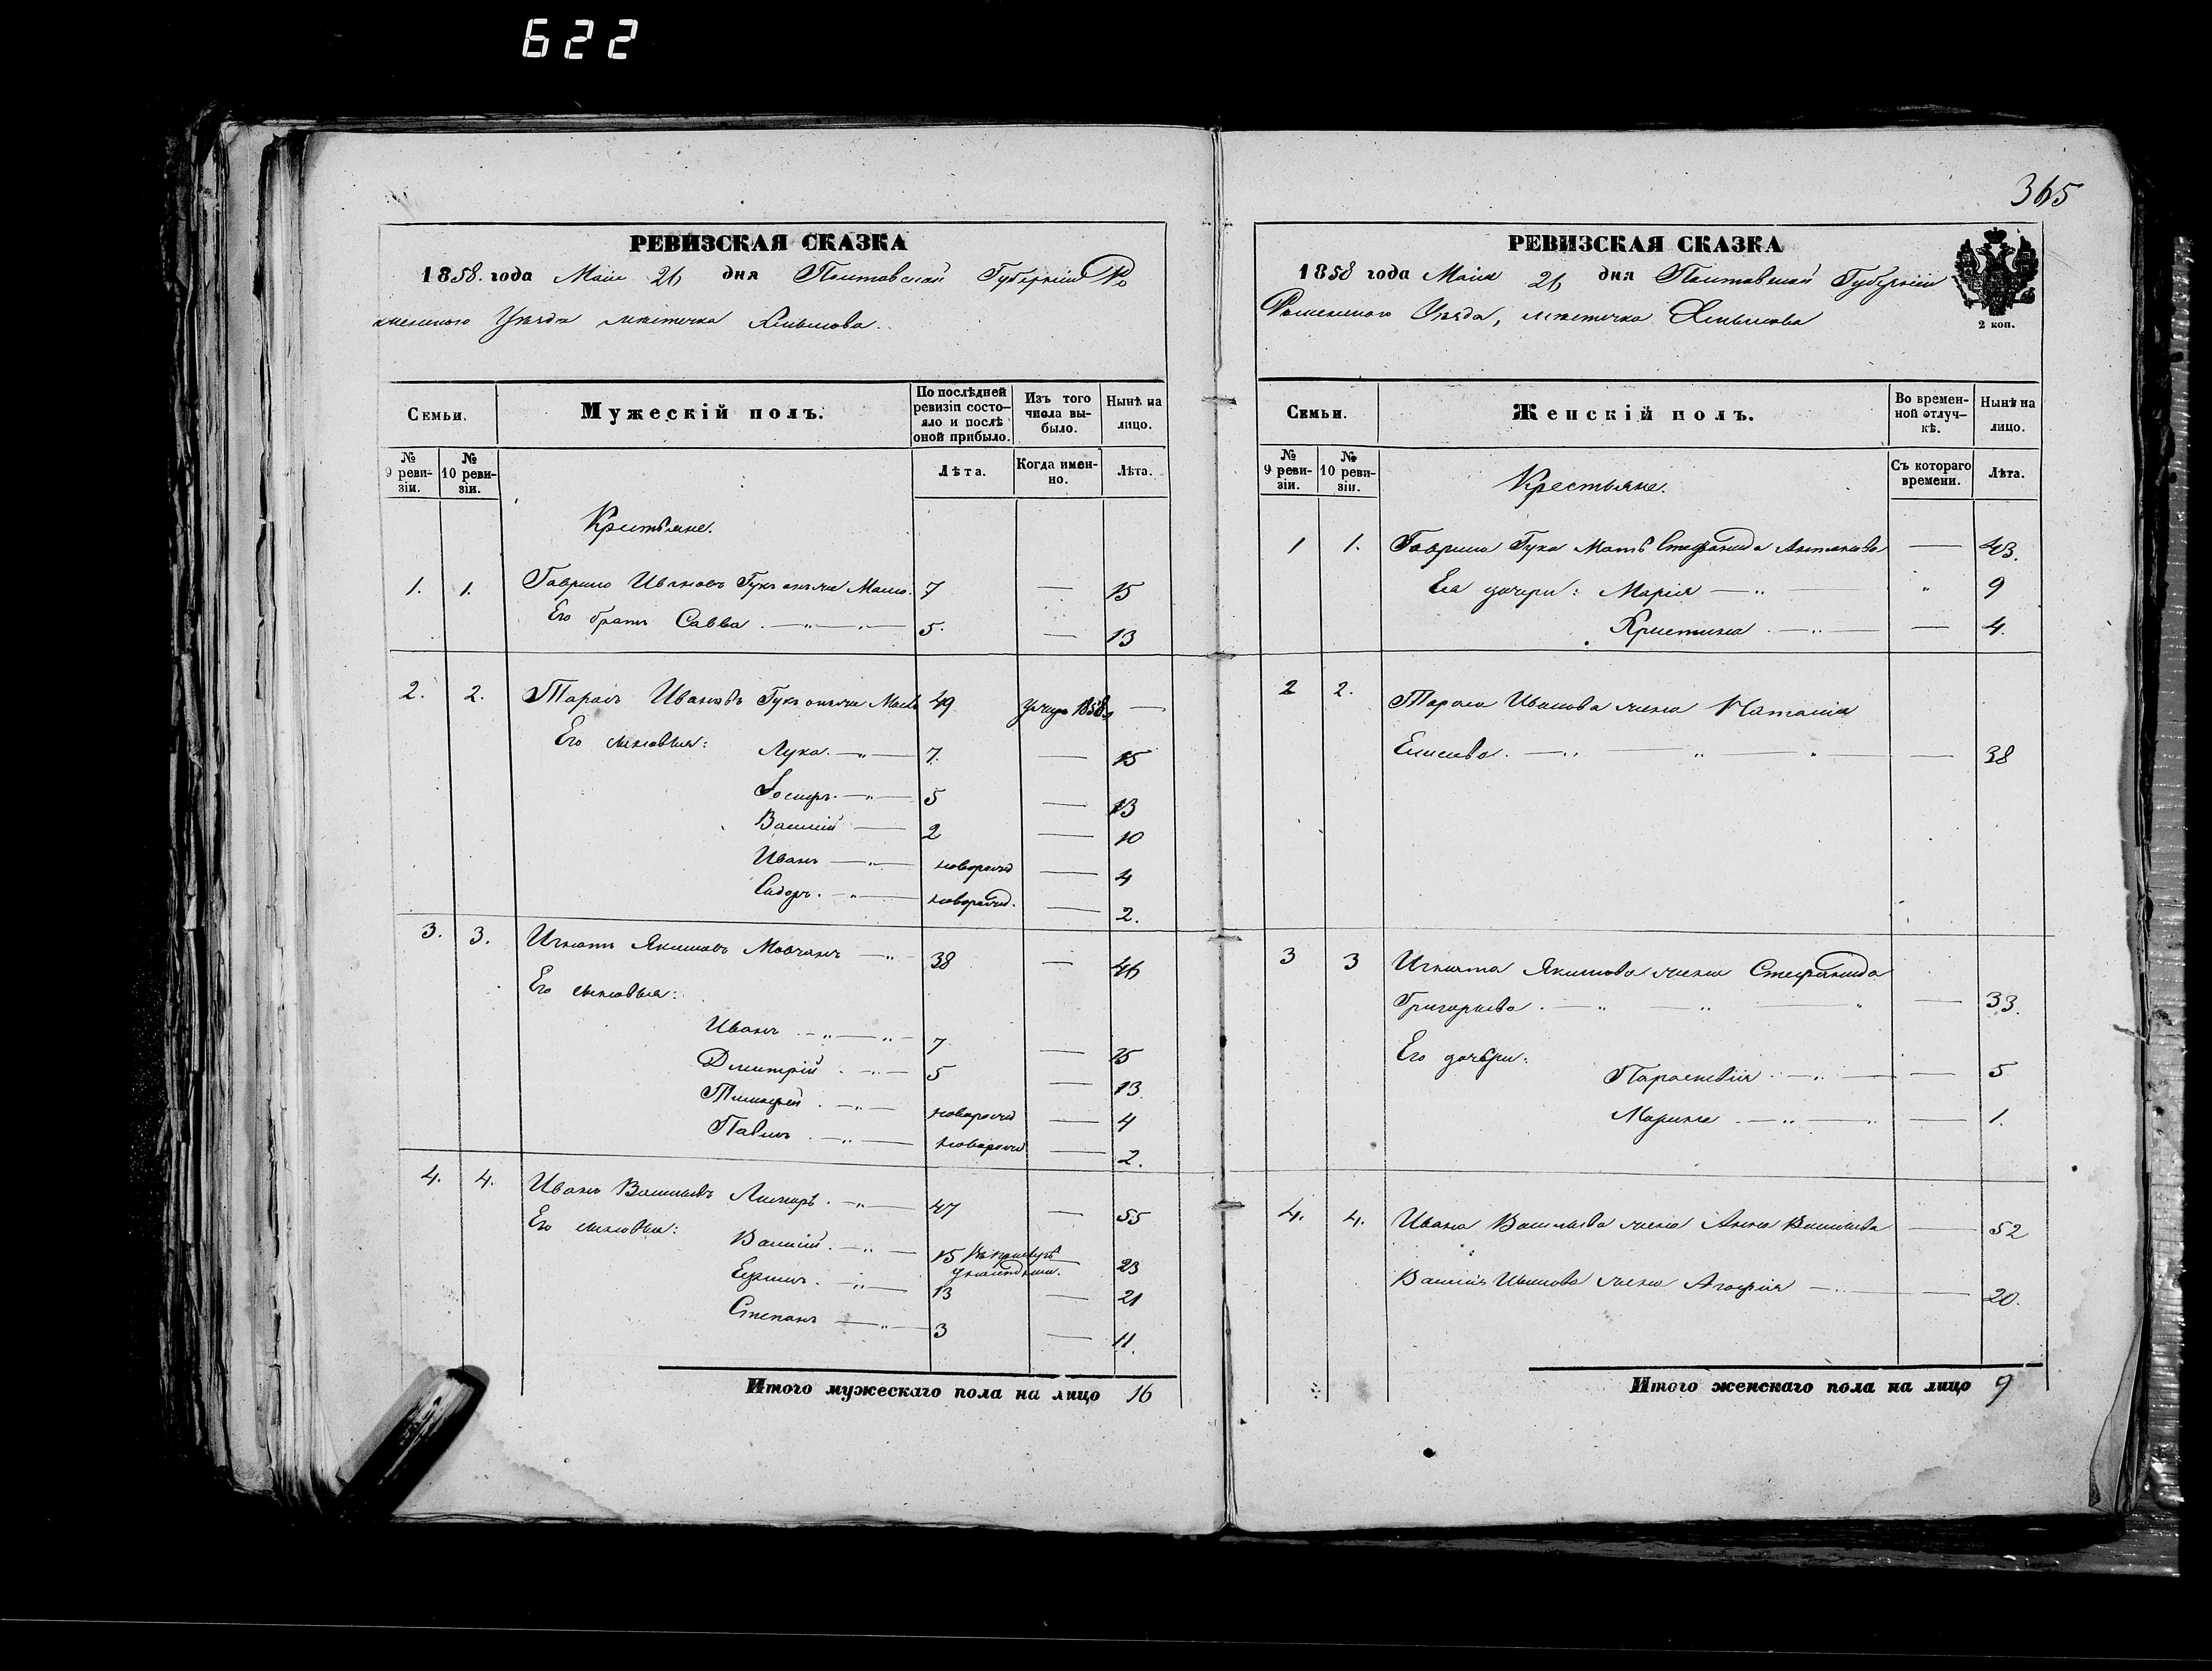 622
365
РЕВИЗСКАЯ СКАЗКА
1858. года Мая 26 дня Полтавской Губерніи Ро
менского Уѣзда мѣстечка Хмѣлова.
Семьи.
Мужескій полъ.
По послѣдней ревизіи состояло и послѣ оной прибыло.
Изъ того числа выбыло.
Нынѣ на лицо.
№ 9 ревизіи.
№ 10 ревизіи.
Лѣта.
Когда именно.
Лѣта.
Крестьяне.
1. 1. Гаврило Ивановъ Гукъ 7 — 15
Его братъ Савва . — „ — 5. — 13
2. 2. Тарасъ Ивановъ Гукъ 49 1858 —
Его сыновья: Лука. — „ — 7. — 15
Іосифъ. — „ — 5 — 13
Василій — 2 — 10
Иванъ — „ — новорожд — 4
Сидоръ. — „ — новорожд. — 2.
3. 3. Игнатъ Якимовъ Мовчанъ — „ — 38 — 46
Его сыновья:
Иванъ . — „ — „ — 7 — 15
Дмитрій . — „ — 5 — 13.
Тимофей . — „ — новорожд — 4
Павелъ . — „ — новорожд — 2.
4. 4. Иванъ Васильевъ Лимаръ . — „ — 47 — 55
Его сыновья: Василій . — „ — 15 23
Ефимъ . — „ — 13 — 21
Степанъ — „ — 3 — 11.
Итого мужескаго пола на лицо 16
РЕВИЗСКАЯ СКАЗКА
1858 года Мая 26 дня Полтавской Губерніи
Роменского Уѣзда, мѣстечка Хмѣлова
2 коп.
Семьи.
Женскій полъ.
Во временной отлучкѣ.
Нынѣ на лицо.
№ 9 ревизіи.
№ 10 ревизіи.
Съ котораго времени.
Лѣта.
Крестьяне.
1 1. Гаврила Гука Мать Стефанида Антонова — 43.
Ея дочери: Марія — „ — „ 9
Христина . — „ — — 4.
2 2. Тараса Иванова жена Наталія
Елисеева . — „ — „ — „ — 38
3 3 Игната Якимова жена Стефанида
Григорьева . — „ — „ — „ — 33.
Его дочери:
Параскевія . — „ — — 5
Марина . — „ — „ — 1.
4. 4. Ивана Васильева жена Анна Васильева — 52
Василія Иванова жена Агафія — „ — 20.
Итого женскаго пола на лицо 9